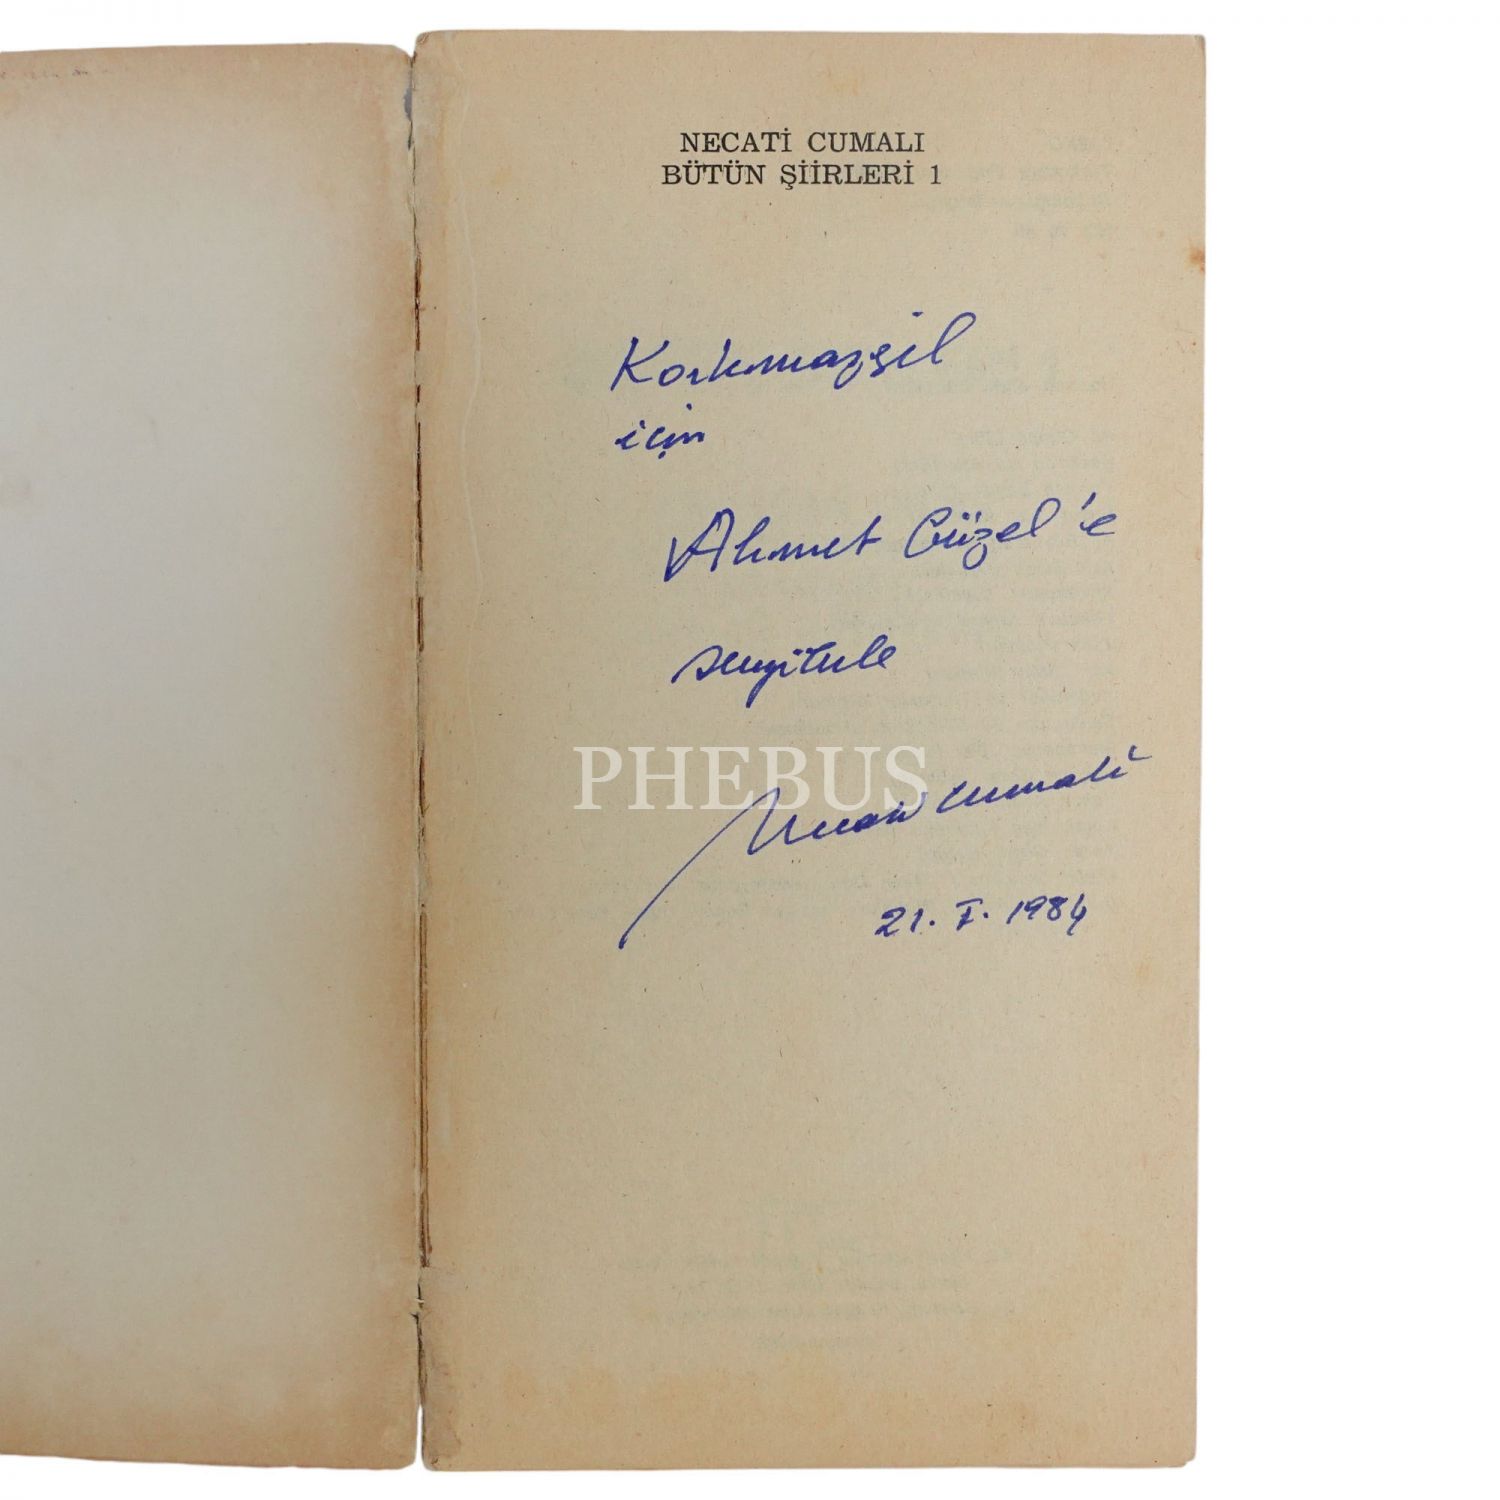 NECATİ CUMALI
BÜTÜN ŞİİRLERİ 1
Korkmazgil
için
Ahmet Güzel'e
sevgilerle
PHEBUS
Necati Cumalı
21. I. 1984